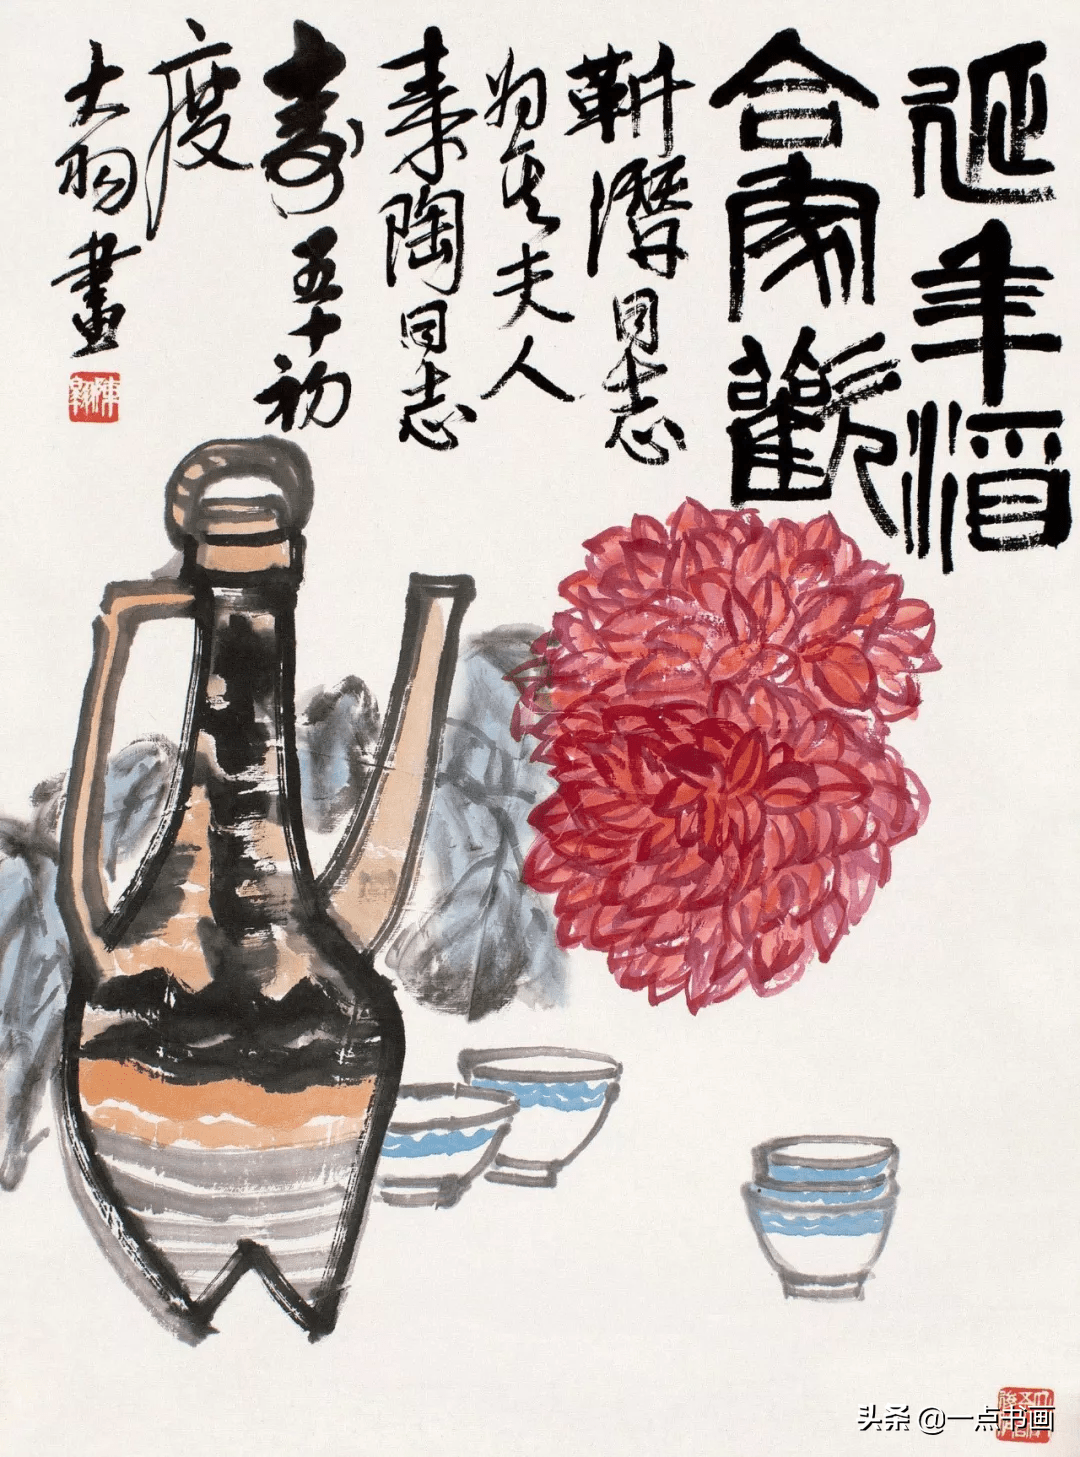 延年酒
合家歡
靳同志
为其夫人
来陶同志
壽五十初
度
大羽畫
陳翱
头条 @一点书画